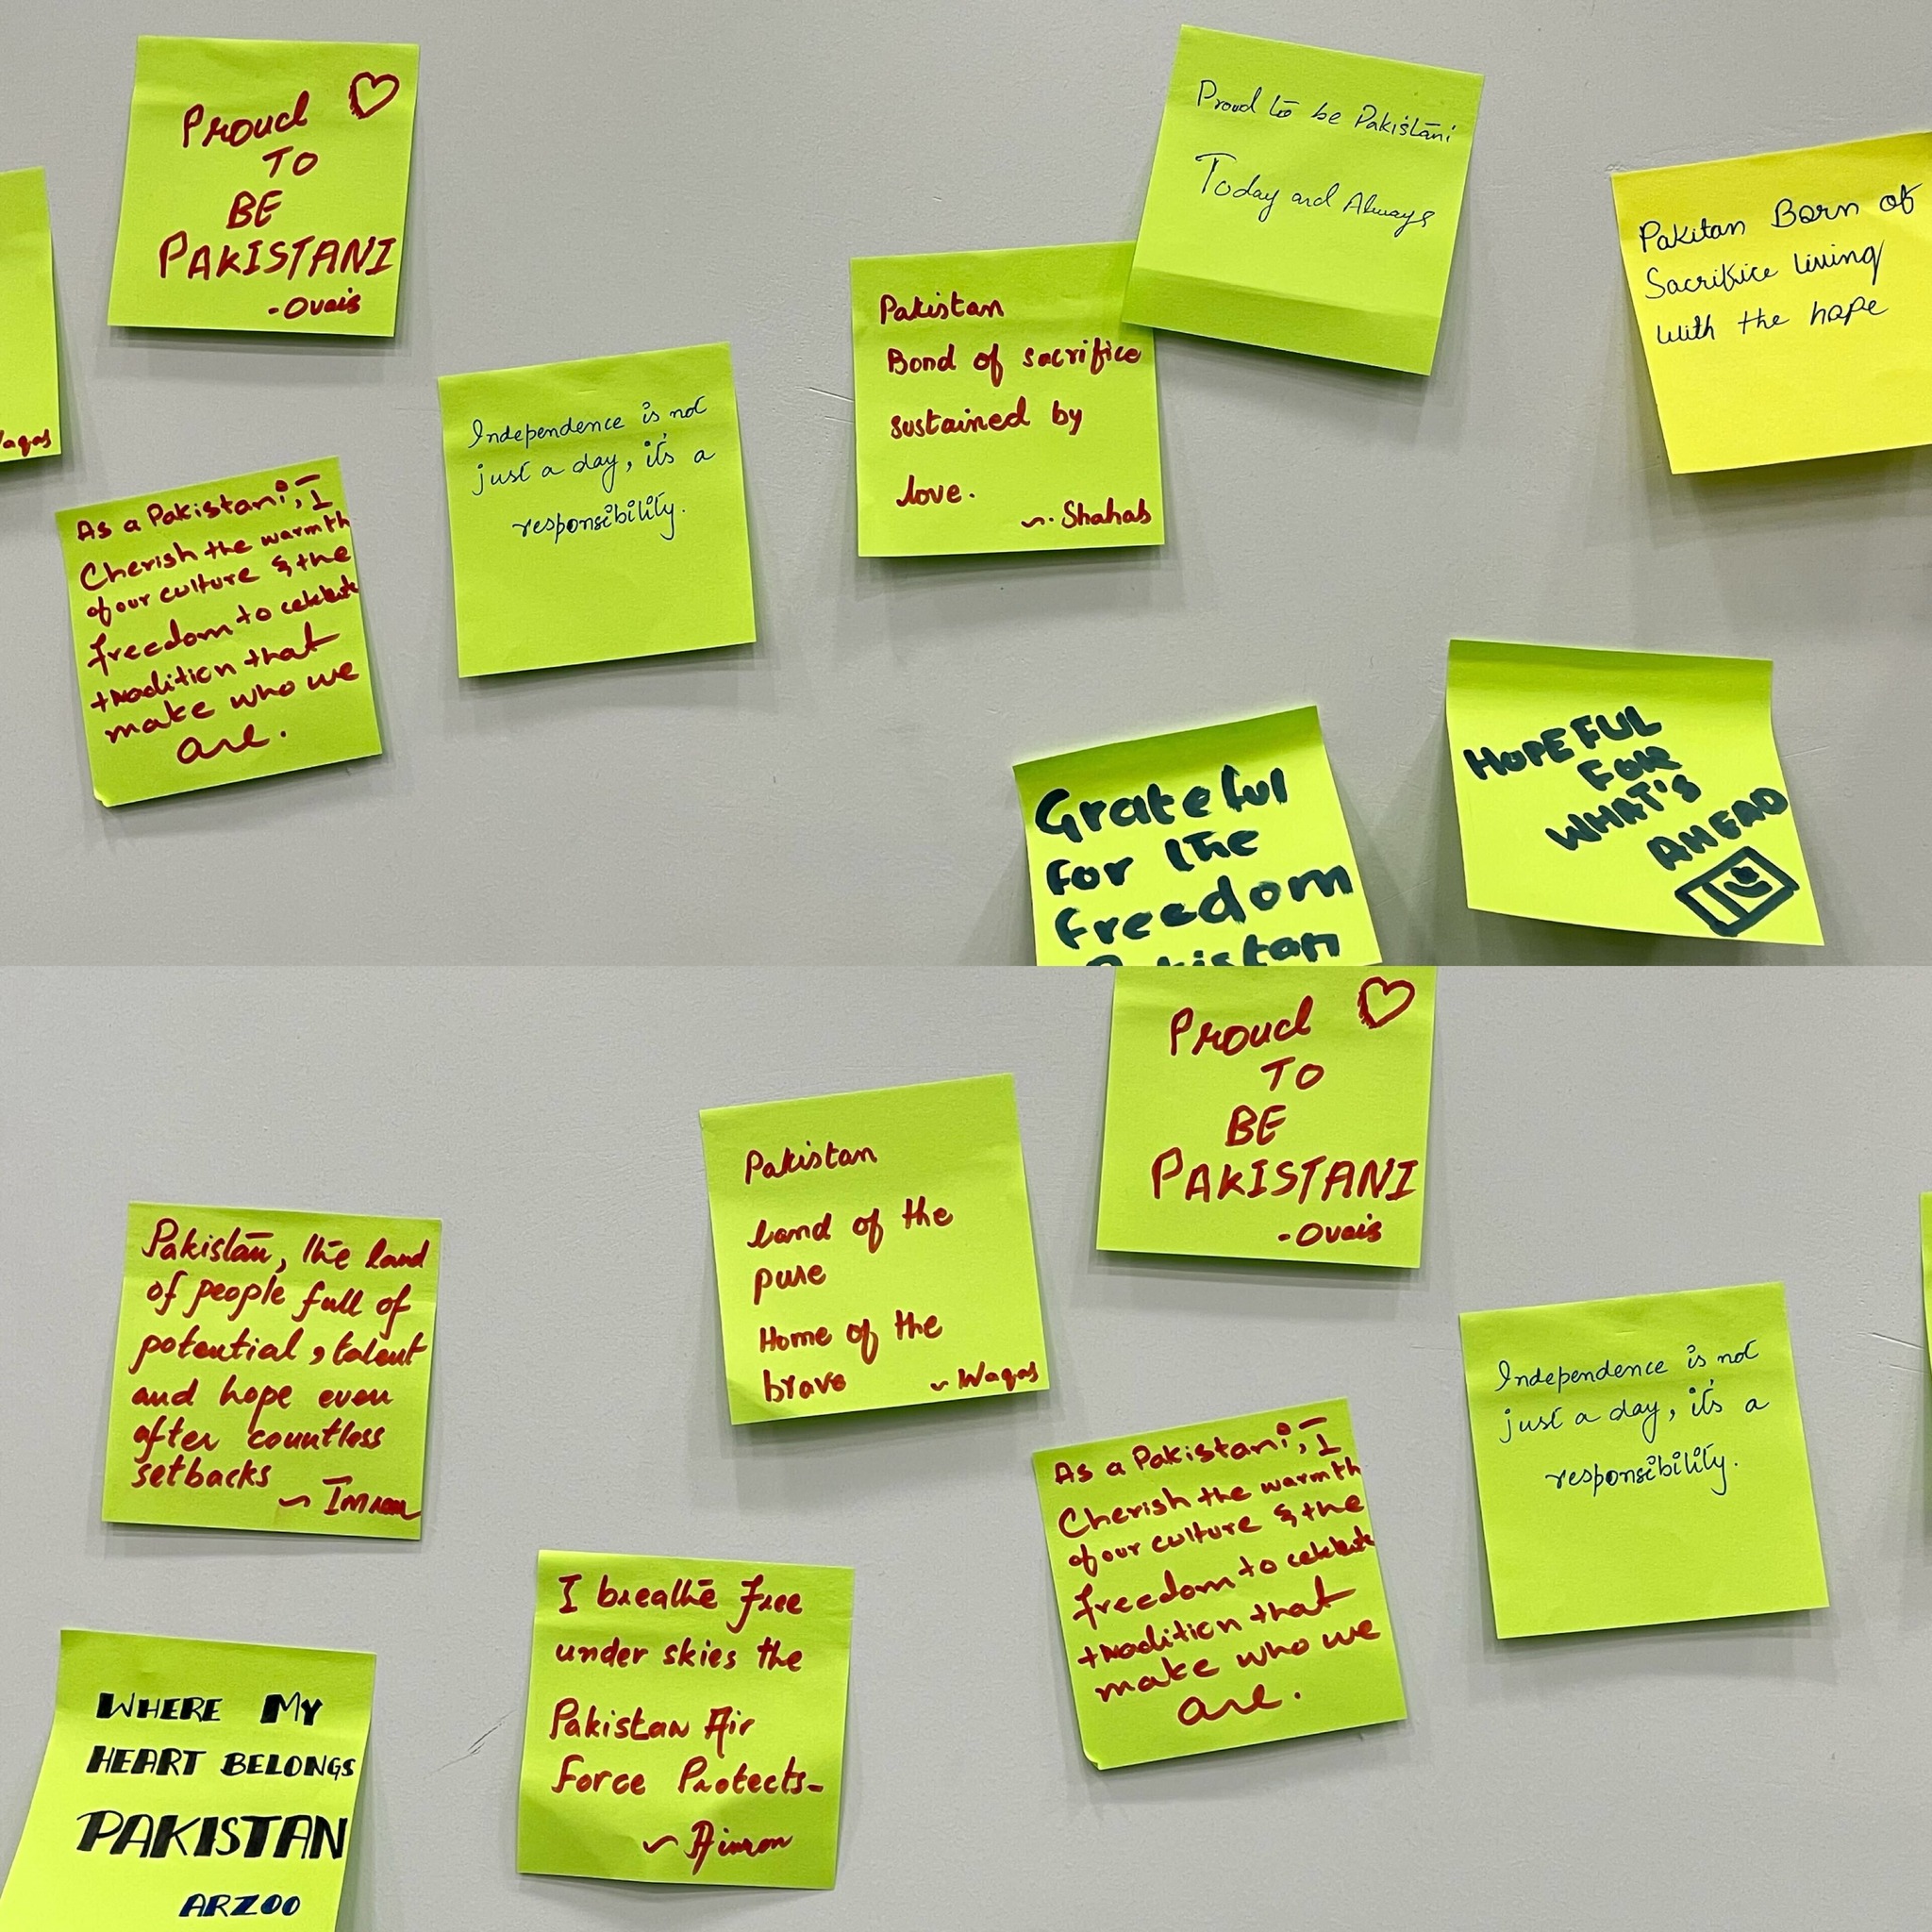 Proud
TO
BE
PAKISTANI
-Ovais
Waqas
As a Pakistani, I
Cherish the warmth
of our culture & the
freedom to celebrate
tradition that
make who we
are.
Independence is not
just a day, it's a
responsibility.
Pakistan
Bond of sacrifice
sustained by
love.
~ Shahab
Proud to be Pakistani
Today and Always
Pakitan Born of
Sacrifice living
with the hope
Grateful
for the
freedom
Pakistan
HOPEFUL
FOR
WHAT'S
AHEAD
Proud
TO
BE
PAKISTANI
-Ovais
Pakistan
Land of the
pure
Home of the
brave ~ Waqas
Pakistan, the land
of people full of
potential, talent
and hope even
after countless
setbacks
~ Imran
As a Pakistani, I
Cherish the warmth
of our culture & the
freedom to celebrate
tradition that
make who we
are.
Independence is not
just a day, it's a
responsibility.
I breathe free
under skies the
Pakistan Air
Force Protects-
WHERE MY
HEART BELONGS
PAKISTAN
ARZOO